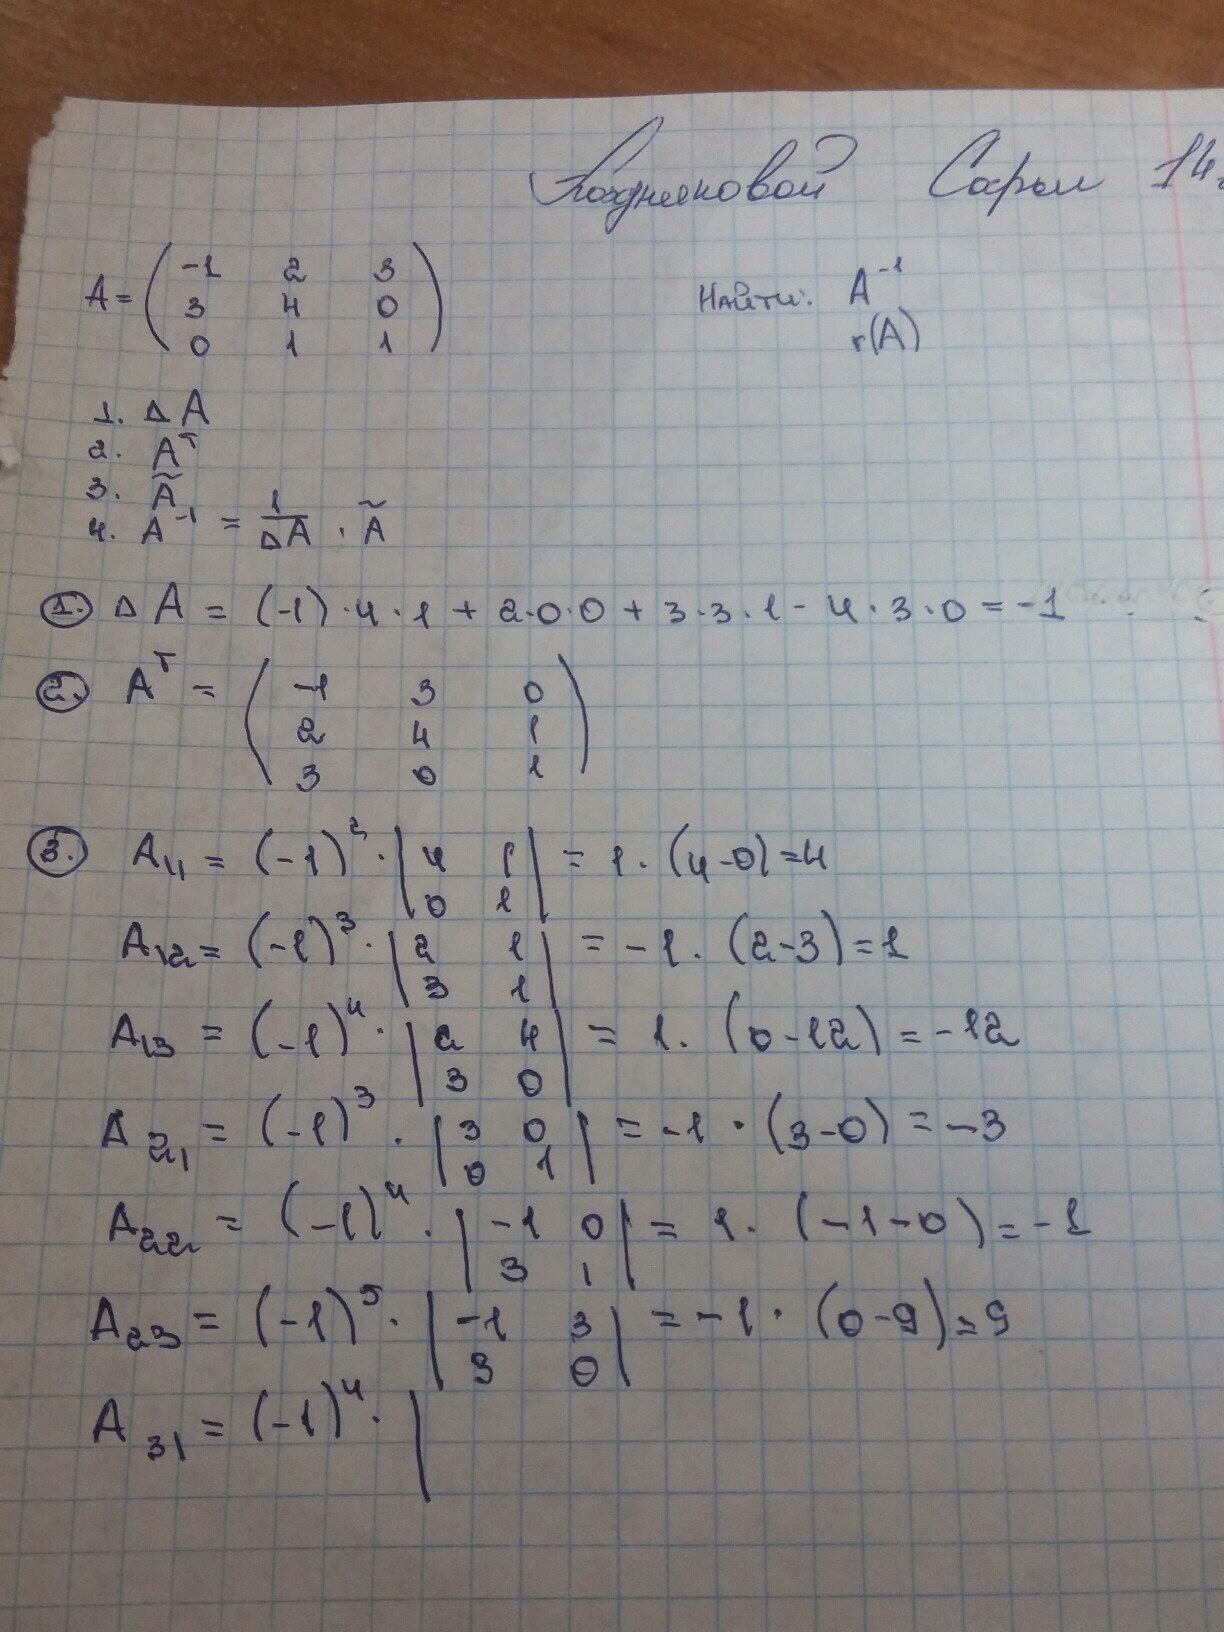 Поздняковой Сарьи 14.
A = ( -1 2 3
3 4 0
0 1 1 )
Найти: A⁻¹
r(A)
1. ΔA
2. Aᵀ
3. Ã
4. A⁻¹ = 1/ΔA · Ã
1. ΔA = (-1)·4·1 + 2·0·0 + 3·3·1 - 4·3·0 = -1
2. Aᵀ = ( -1 3 0
2 4 1
3 0 1 )
3. A₁₁ = (-1)² · | 4 1
0 1 | = 1·(4-0) = 4
A₁₂ = (-1)³ · | 2 1
3 1 | = -1·(2-3) = 1
A₁₃ = (-1)⁴ · | 2 4
3 0 | = 1·(0-12) = -12
A₂₁ = (-1)³ · | 3 0
0 1 | = -1·(3-0) = -3
A₂₂ = (-1)⁴ · | -1 0
3 1 | = 1·(-1-0) = -1
A₂₃ = (-1)⁵ · | -1 3
3 0 | = -1·(0-9) = 9
A₃₁ = (-1)⁴ · |